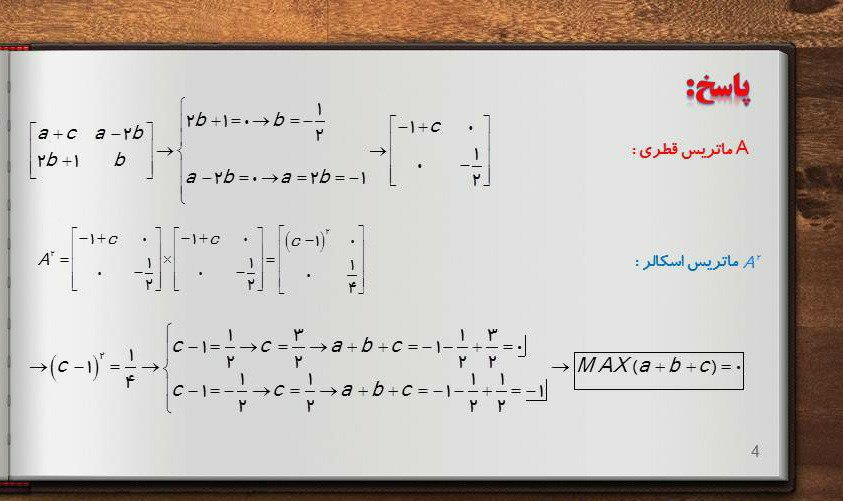 پاسخ:
A ماتریس قطری :
[a+c a-۲b ; ۲b+۱ b] → { ۲b+۱=۰→b=-۱/۲ ; a-۲b=۰→a=۲b=-۱ → [-۱+c ۰ ; ۰ -۱/۲]
A^۲ ماتریس اسکالر :
A^۲=[-۱+c ۰ ; ۰ -۱/۲]×[-۱+c ۰ ; ۰ -۱/۲]=[(c-۱)^۲ ۰ ; ۰ ۱/۴]
→(c-۱)^۲=۱/۴→{ c-۱=۱/۲→c=۳/۲→a+b+c=-۱-۱/۲+۳/۲=۰
c-۱=-۱/۲→c=۱/۲→a+b+c=-۱-۱/۲+۱/۲=-۱
→ MAX(a+b+c)=۰
4